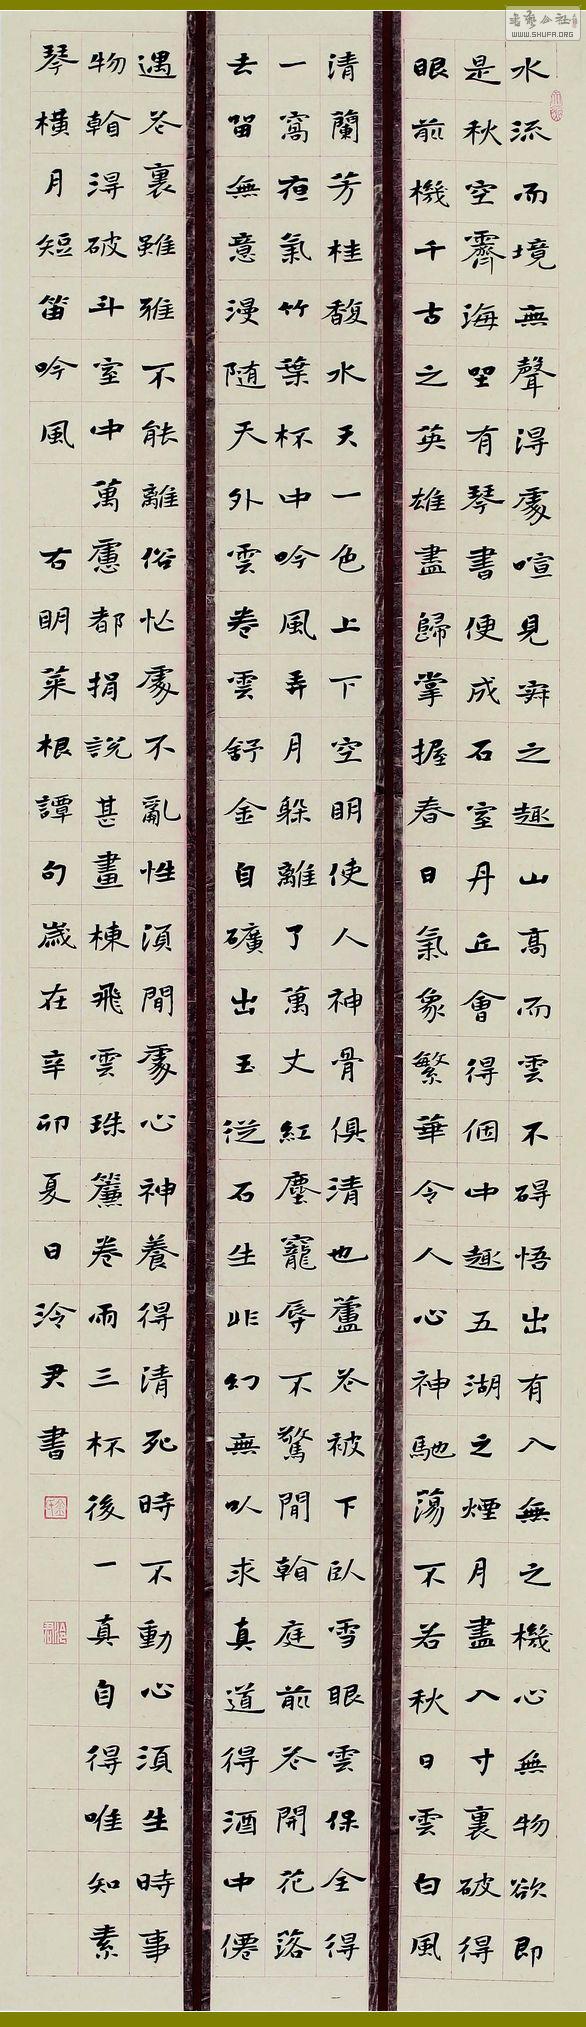 水流而境無聲得處喧見寂之趣山高而雲不碍悟出有入無之機心無物欲即
是秋空霽海坐有琴書便成石室丹丘會得個中趣五湖之煙月盡入寸裏破得
眼前機千古之英雄盡歸掌握春日氣象繁華令人心神馳蕩不若秋日雲白風
清蘭芳桂馥水天一色上下空明使人神骨俱清也蘆花被下臥雪眠雲保全得
一窩夜氣竹葉杯中吟風弄月躲離了萬丈紅塵寵辱不驚閒看庭前花開花落
去留無意漫随天外雲卷雲舒金自礦出玉從石生非幻無以求真道得酒中僊
遇花裏雖雅不能離俗忙處不亂性須閒處心神養得清死時不動心須生時事
物看得破斗室中萬慮都捐說甚畫棟飛雲珠簾卷雨三杯後一真自得唯知素
琴橫月短笛吟風 右明菜根譚句歲在辛卯夏日泠尹書
WWW.SHUFA.ORG